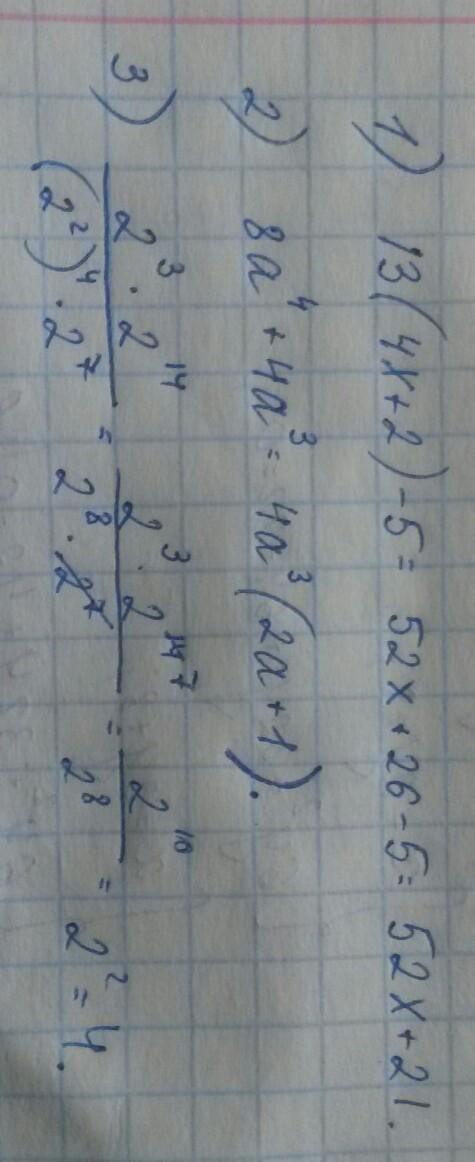 1) 13(4x+2)-5= 52x+26-5= 52x+21.
2) 8a⁴+4a³= 4a³(2a+1).
3) (2³·2¹⁴)/((2²)⁴·2⁷) = (2³·2¹⁴ ⁷)/(2⁸·2⁷) = 2¹⁰/2⁸ = 2²=4.